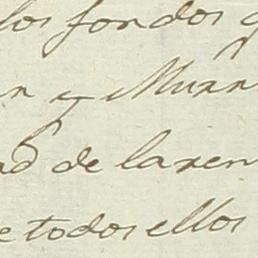 los fondos q
n y Murn
ad de la ren
e todos ellos